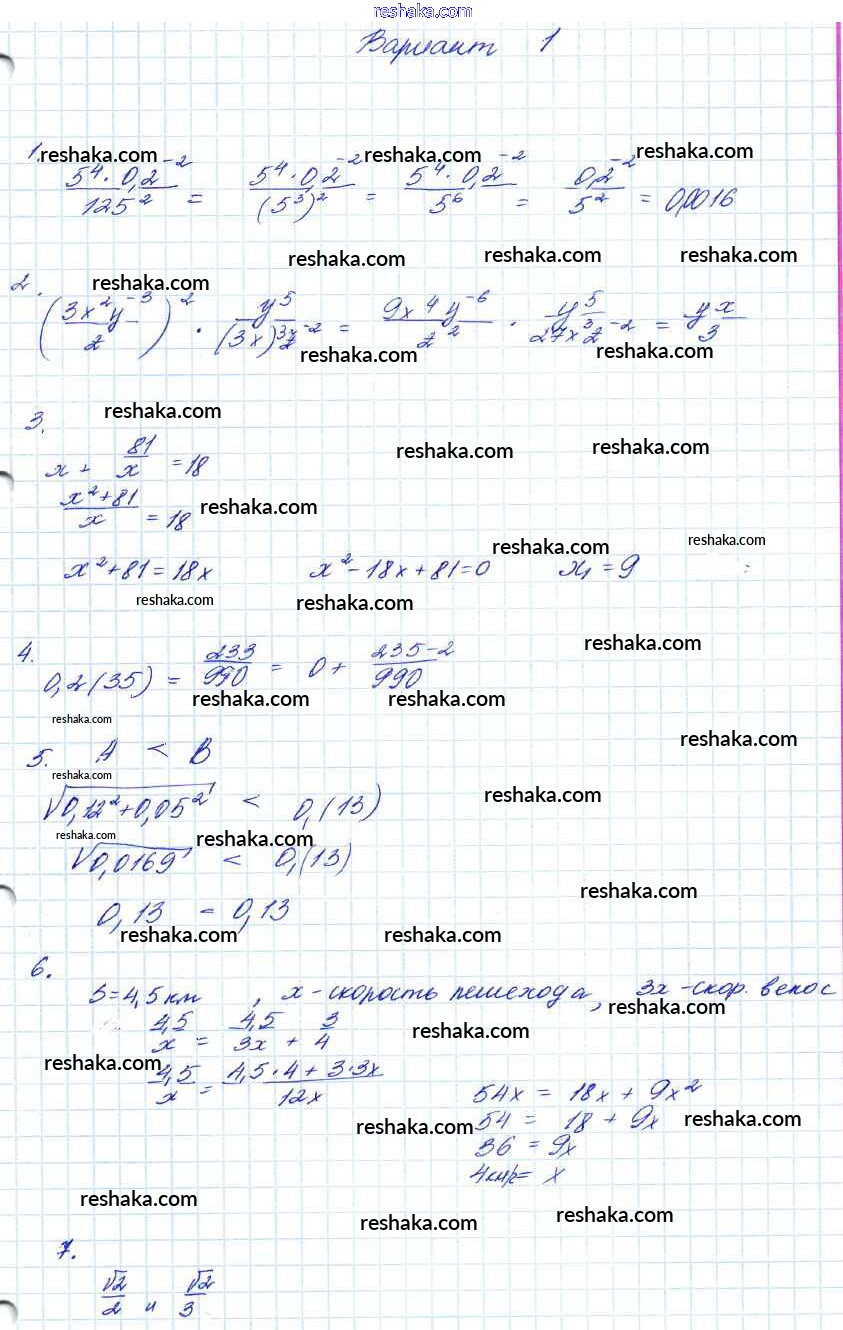 reshaka.com
Вариант 1
1. 5⁴·0,2⁻²/125² = 5⁴·0,2⁻²/(5³)² = 5⁴·0,2⁻²/5⁶ = 0,2⁻²/5² = 0,0016
reshaka.com reshaka.com reshaka.com
reshaka.com reshaka.com reshaka.com
2. (3x²y⁻³/z)² · y⁵/(3x)³z⁻² = 9x⁴y⁻⁶/z² · y⁵/27x³z⁻² = yx/3
reshaka.com reshaka.com
3. reshaka.com
x + 81/x = 18
reshaka.com reshaka.com
x²+81/x = 18
reshaka.com
reshaka.com reshaka.com
x²+81=18x x²-18x+81=0 x₁ = 9
reshaka.com reshaka.com
reshaka.com
4. 0,2(35) = 233/990 = 0 + 235-2/990
reshaka.com reshaka.com
reshaka.com
reshaka.com
5. A < B
reshaka.com
√0,12²+0,05² < 0,(13)
reshaka.com
reshaka.com reshaka.com
√0,0169 < 0,(13)
reshaka.com
0,13 = 0,13
reshaka.com reshaka.com
6. S=4,5км, x-скорость пешехода, 3x-скор. велос
reshaka.com
4,5/x = 4,5/3x + 3/4
reshaka.com
reshaka.com
4,5/x = 4,5·4+3·3x/12x
54x = 18x + 9x²
54 = 18 + 9x
reshaka.com reshaka.com
36 = 9x
4км/ч = x
reshaka.com
reshaka.com reshaka.com
7.
√2/2 и √2/3